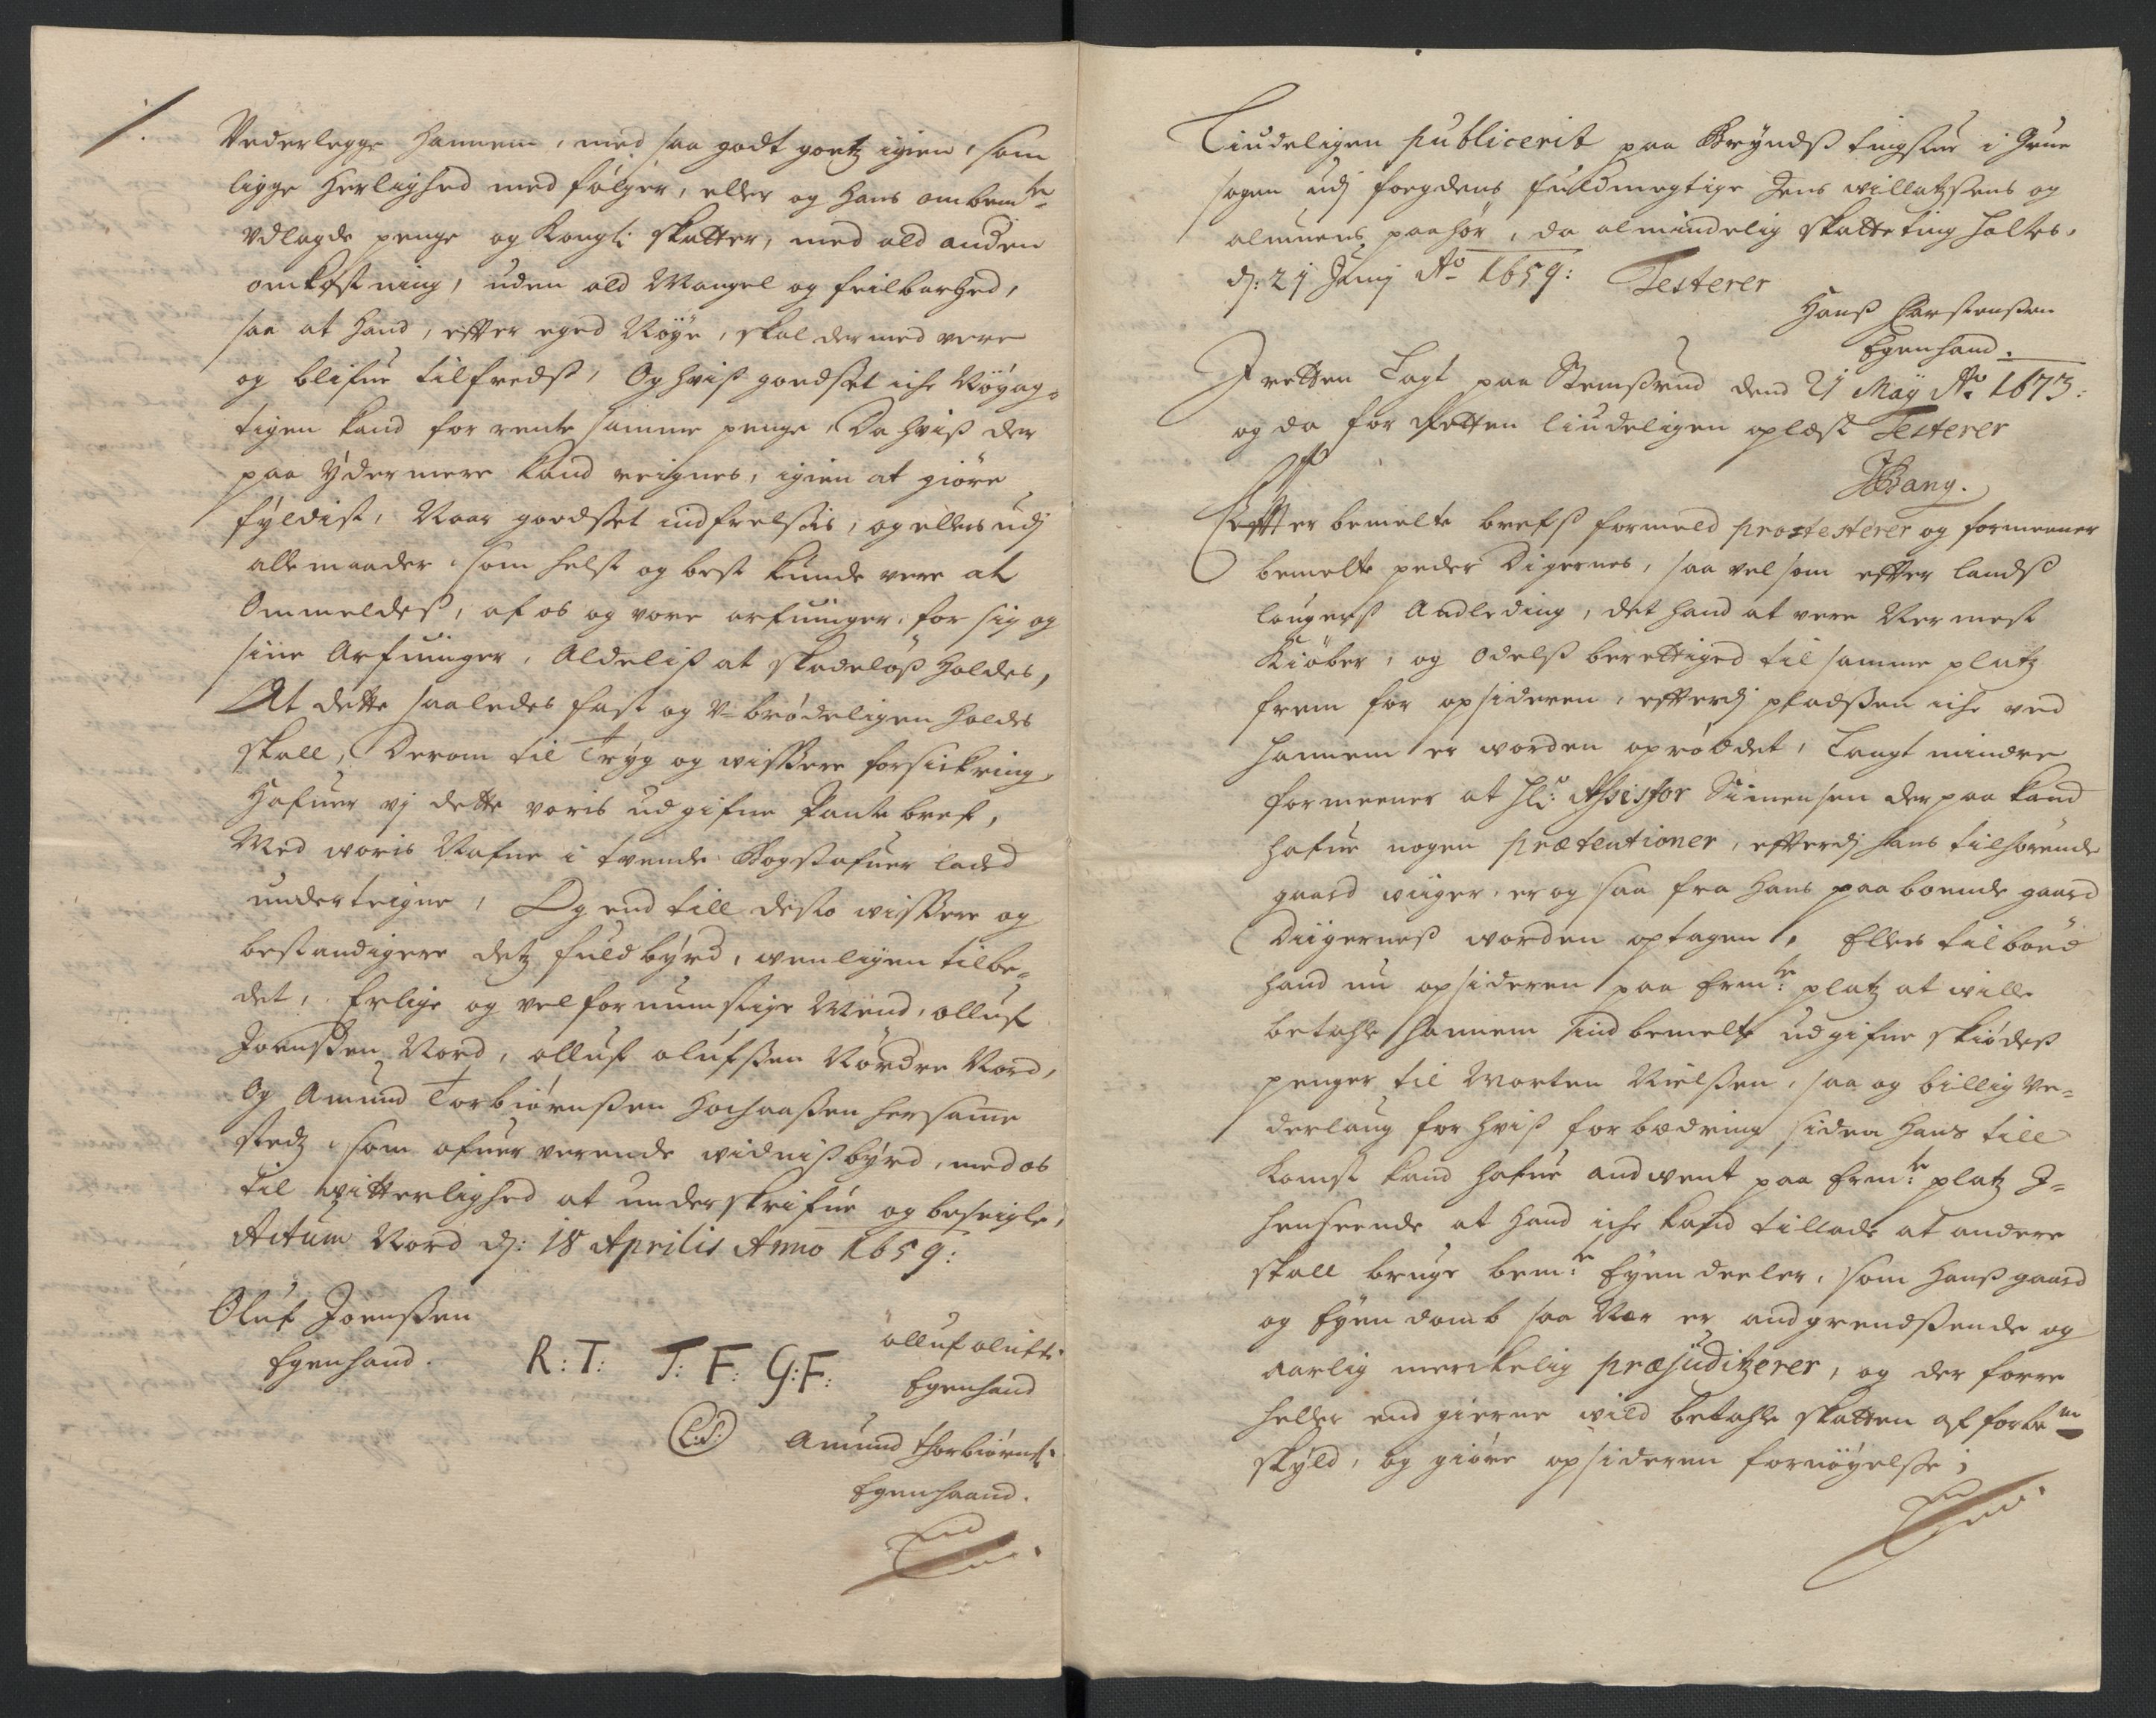 1.
Vederlegge hannem, med saa godt goetz igien, som
ligge Herlighed med følger, eller og hans ombemte
Vdlagde penge og Kongl: skatter, med ald anden
omkostning, uden ald Mangel og feilbarhed,
saa at hand, effter eged Nöye, skal dermed vere
og blifue tilfredß, Og hviß goedset iche Nöyag=
tigen kand for rente samme penge, Da hviß der
paa ydermere kand reignes, igien at giöre
fyldist, Naar goedset indfrelsis, og ellers udj
alle maader som helst og best kunde vere at
Ommeldes, af os og vore arfuinger, for sig og
sine Arfuinger, Aldeliß at skadelöß holdes,
At dette saaledes fast og V-brödeligen holdes
skall, Derom til Tryg og wissere forsickring,
Hafuer vj dette voris udgifne Pante bref,
Med woris Nafne i tvende Bogstafuer laded
underteigne, Og end till disto wissere og
bestandigere detz fuldbyrd, wenligen tilbe=
det, Erlige og velfornumstige Mend, olluf
Joenßen Nord, olluf olufsen Nordre Nord,
Og Amund Torbiörnsen Hochaaßen hersame
stedz, som ofuer verende vidnißbyrd, med os
til witterlighed at underskrifue og beseigle,
Actum Nord dj: 18 Aprilis Anno 1659:
Oluf Joenßen
Egenhand.
R: T: T: F: G: F:
olluf olufs:
Egenhand
L:S:
Amund Thorbiörns:
Egenhaand.
Liudeligen publicerit paa Bryndß tingstue i Grue
sogen udj foegdens fuldmegtige Jens willatzsens og
almuens paahör, da almindelig skatteting holtes,
dj: 21 Junj Ao 1659: Testerer
Hanß Carstensen
Egenhand.
J retten Lagt paa Stemßrud dend 21 May Ao 1673:
og da for Retten liudeligen oplest Testerer
JBang.
Effter bemelte brefs formeld protesterer og formeener
bemelte peder Digernes, saa vel som effter landß
lougenß Andleding, det hand at vere Nermest
Kiöber, og odelß berettiged til samme platz
frem for opsideren, efferdj pladsen iche ved
hannem er worden opröddet, Langt mindre
formeener at Hr: Assessor Simensen der paa kand
hafue nogen prætentioner, efferdj hans tilhörende
gaard wiiger, er og saa fra hans paaboende gaard
Diigerneß worden optagen, Ellers tilböd
hand nu opsideren paa Ermte: platz at wille
betahle hannem sind bemelte udgifne skiödes
penger til Morten Nielsen, saa og billig Ve=
derlaug for hviß forbædring siden hans till
komst kand hafue andvent paa Ermte: platz J=
henseende at hand iche kand tillade at andere
skall bruge bemte: Eyendeeler, som hanß gaard
og Eyendomb saa Nær er andgrendsende og
aarlig merckelig præjuditzerer, og der forre
heller end gierne wild betahle skatten af forbem
skyld, og giöre opsideren fornöyelse;